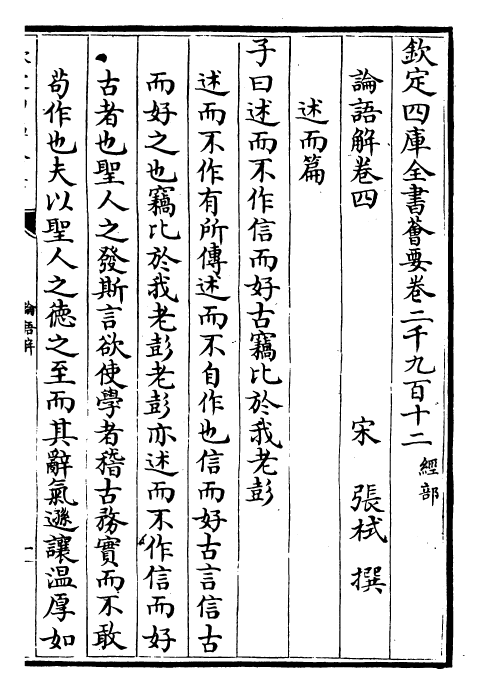 欽定四庫全書薈要卷二千九百十二 經部
論語解卷四 宋 張栻 撰
述而篇
子曰述而不作信而好古竊比於我老彭
述而不作有所傳述而不自作也信而好古言信古
而好之也竊比於我老彭老彭亦述而不作信而好
古者也聖人之發斯言欲使學者稽古務實而不敢
苟作也夫以聖人之德之至而其辭氣遜讓温厚如
論語解
一